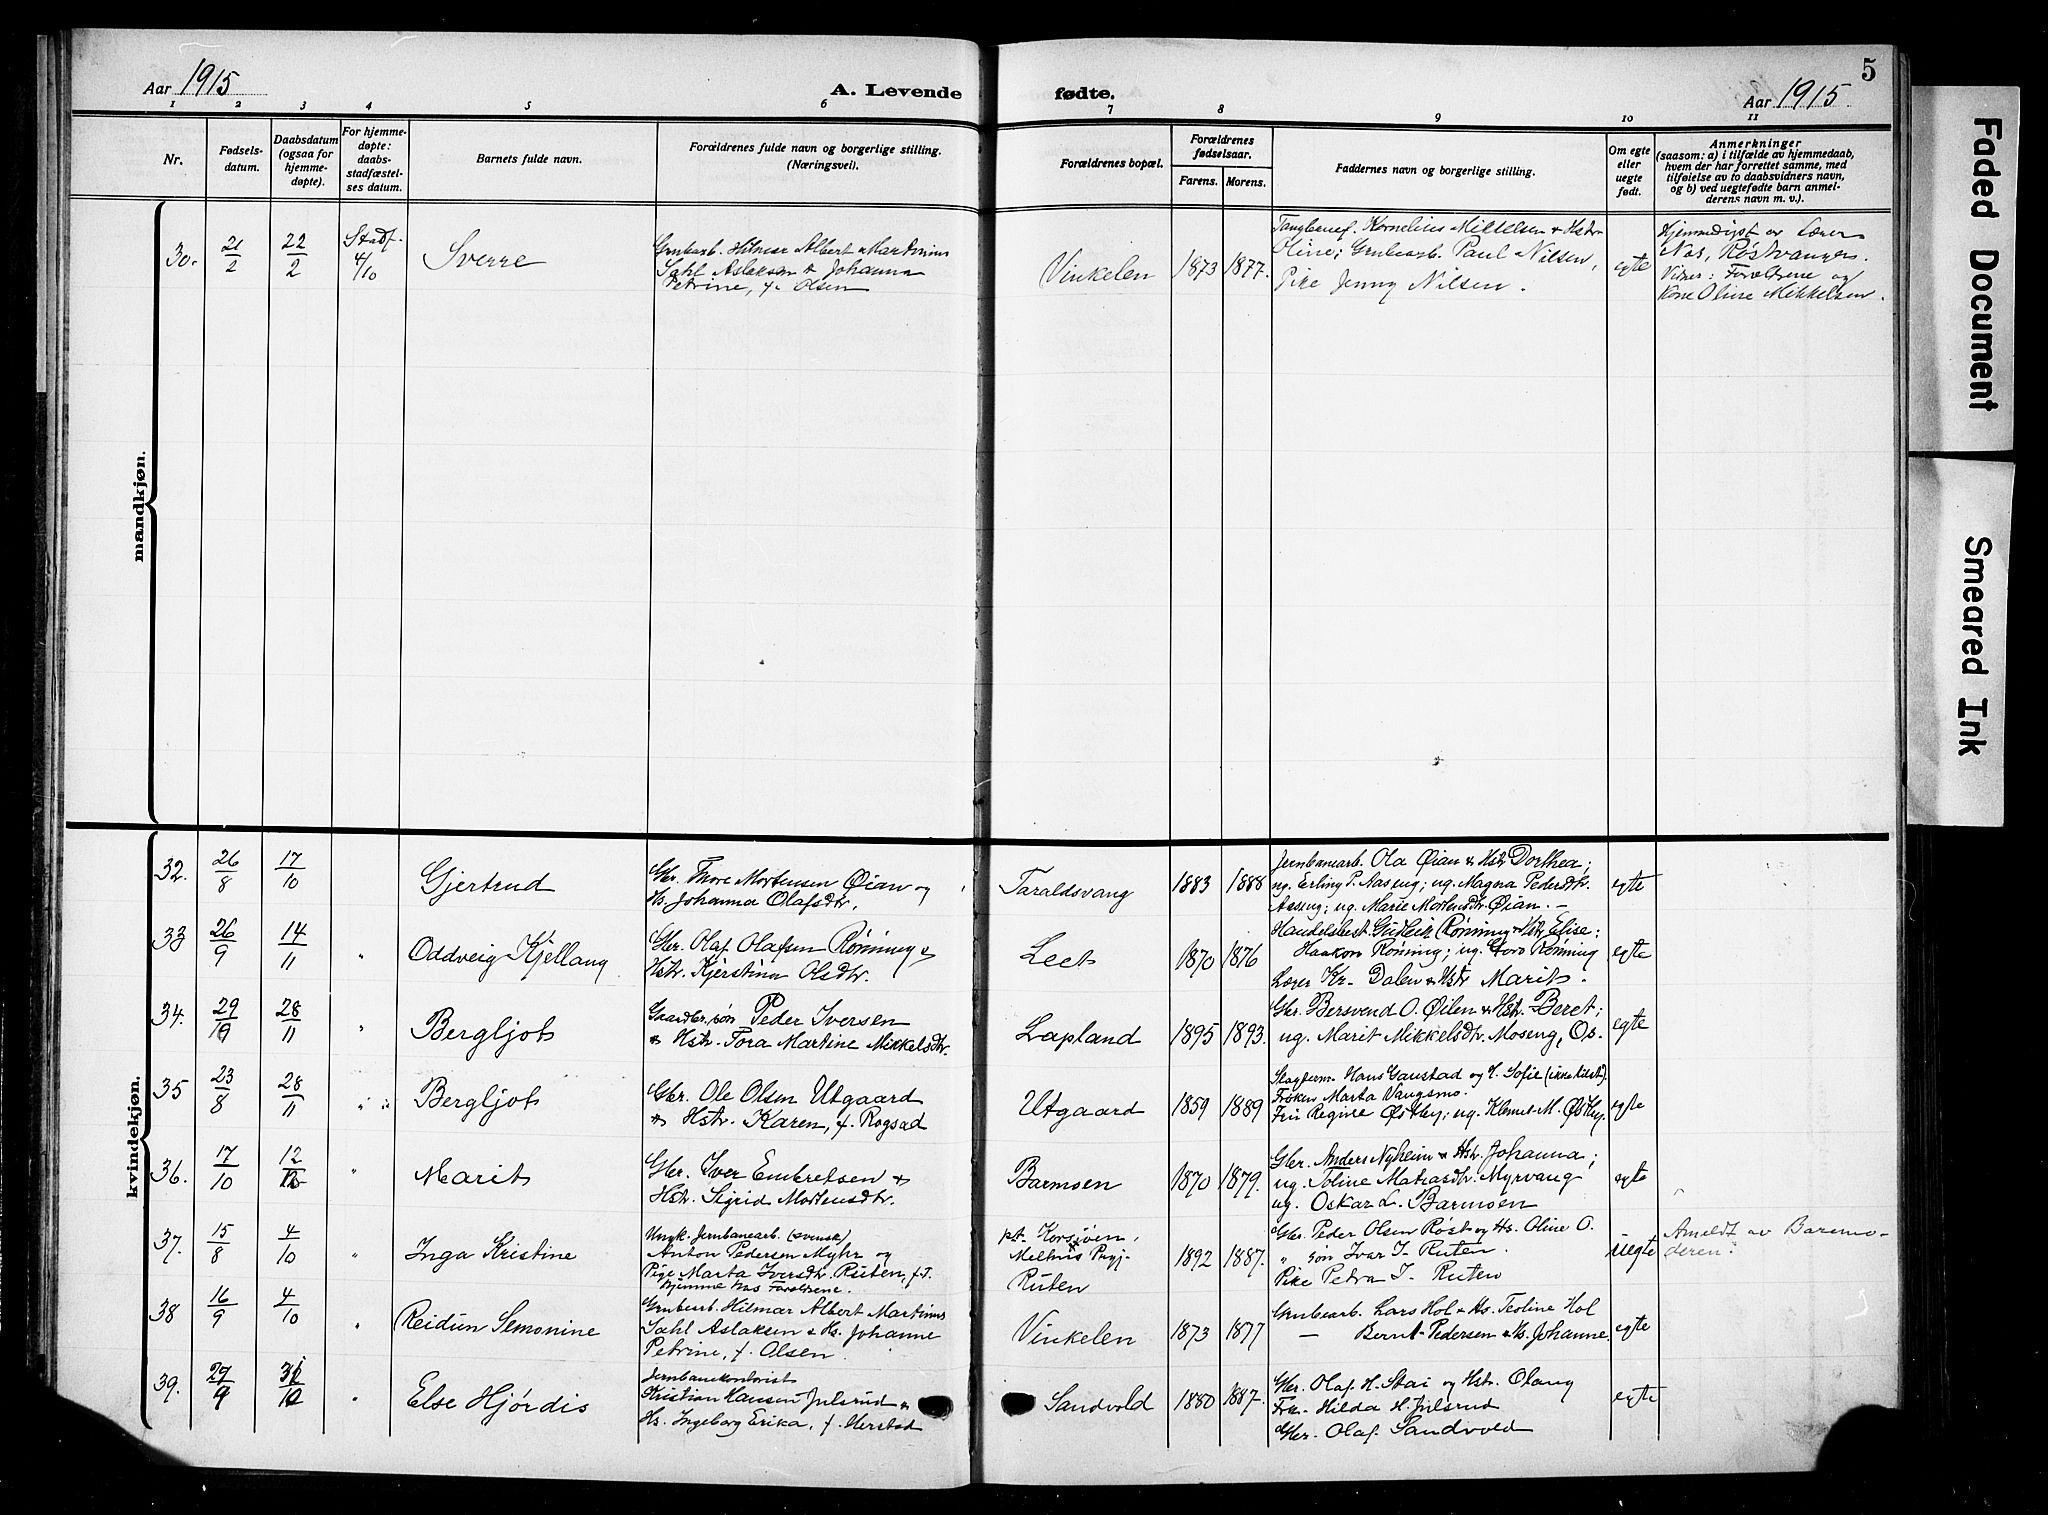 Aar 1915
A. Levende fødte.
5
Aar 1915
1 2 3 4 5 6 7 8 9 10 11
Nr.
Fødsels-
datum.
Daabsdatum
(ogsaa for
hjemme-
døpte).
For hjemme-
døpte:
daabs-
stadfæstel-
ses datum.
Barnets fulde navn.
Forældrenes fulde navn og borgerlige stilling.
(Næringsvei).
Forældrenes bopæl.
Forældrenes
fødselsaar.
Farens. Morens.
Faddernes navn og borgerlige stilling.
Om egte
eller
uegte
født.
Anmerkninger
(saasom: a) i tilfælde av hjemmedaab,
hvem der har forrettet samme, med
tilføielse av to daabsvidners navn,
og b) ved uegtefødte barn anmel-
derens navn m. v.).
mandkjøn.
30.
21/2
22/2
Stadf.
4/10
Sverre
Grubearb. Hilmar Albert Martinius
Dahl Aslaksen & Johanna
Petrine, f. Olsen
Vinkelen
1873
1877.
Kornelius Mikkelsen & Hstr
Oline; Grubearb. Paul Nilsen,
Pike Jenny Nilsen.
egte
Hjemmedøpt av Lærer
Nas, Røstvangen.
Vidner: Forældrene og
Kone Oline Mikkelsen.
kvindekjøn.
32.
26/8
17/10
Gjertrud
Gbr. Thore Mortensen Øian og
Hs. Johanna Olafsdtr.
Taraldsvang
1883
1888
Jernbanearb. Ola Øian & Hstr Dorthea;
ug. Erling P. Aaseng; ug. Magna Pedersdtr.
Aaseng; ug. Marie Mortensdtr. Øian. –
egte
33
26/9
14/11
"
Oddveig Kjellaug
Gbr. Olaf Olafsen Rønning &
Hstr. Kjerstina Olsdtr.
Leet
1870
1876
Handelsbest. Gudleik Rønning & Hstr Elise;
Haakon Rønning; ug. Toro Rønning
Lærer Kr. Dalen & Hstr Marit.
egte
34.
29/9
28/11
"
Bergljot
Gaardbr.søn Peder Iversen
& Hstr. Tora Martine Mikkelsdtr.
Lapland
1895
1893.
Gbr. Bersvend O. Øilen & Hstr. Beret;
ug. Marit Mikkelsdtr. Moseng, Os.
egte
35
23/8
28/11
" "
Bergljot
Gbr. Ole Olsen Utgaard
& Hstr. Karen, f. Rogsad
Utgaard
1859
1889
Hans Gaustad og H. Sofie (ikke tilst).
Frøken Marta Vangsmo.
Fru Regine Østby; ug. Klemet M. Østby.
egte
36.
17/10
12/12
"
Marit
Gbr. Iver Embretsen &
Hstr. Sigrid Mortensdtr.
Barmoen
1870
1879.
Gbr. Anders Nyheim & Hstr. Johanna;
ug. Toline Matiasdtr. Myrvang
ug. Oskar L. Barmoen
egte
37.
15/8
4/10
"
Inga Kristine
Ungk. Jernbanearb. (svensk)
Anton Pedersen Myhr og
Pige Marta Iversdtr. Ruten, f. T.
Hjemme hos Forældrene.
pt. Korsjöen,
Melhus Prgj.
Ruten
1892
1887.
Gbr. Peder Olsen Røst og Hs. Oline O.
" søn Ivar I. Ruten.
Pike Petra I. Ruten
uegte
Anmeldt av Barnemo-
deren.
38
16/9
4/10
"
Reidun Semonine
Grubearb. Hilmar Albert Martinius
Dahl Aslaksen & Hs. Johanne
Petrine, f. Olsen
Vinkelen
1873
1877
Grubearb. Lars Hol & Hs. Teoline Hol
— Bernt Pedersen & Hs. Johanne.
egte
39.
27/9
31/10
"
Else Hjørdis
Jernbanekontorist
Kristian Hansen Julsrud &
Hs. Ingeborg Erika, f. Herstad
Sandvold
1880
1887.
Gbr. Olaf H. Stai og Hstr. Olaug
Frk. Hilda H. Julsrud
Gbr. Olaf Sandvold
egte
Faded Document
Smeared Ink